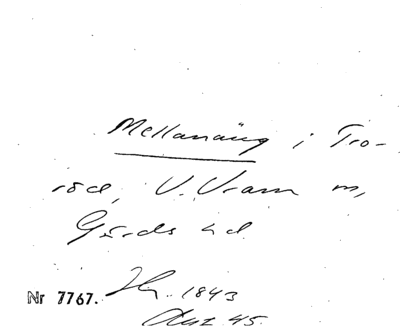 Mellanäng i Tro-
röd, V. Vram sn,
Gärds hd.
Nr 7767. 1843
45.